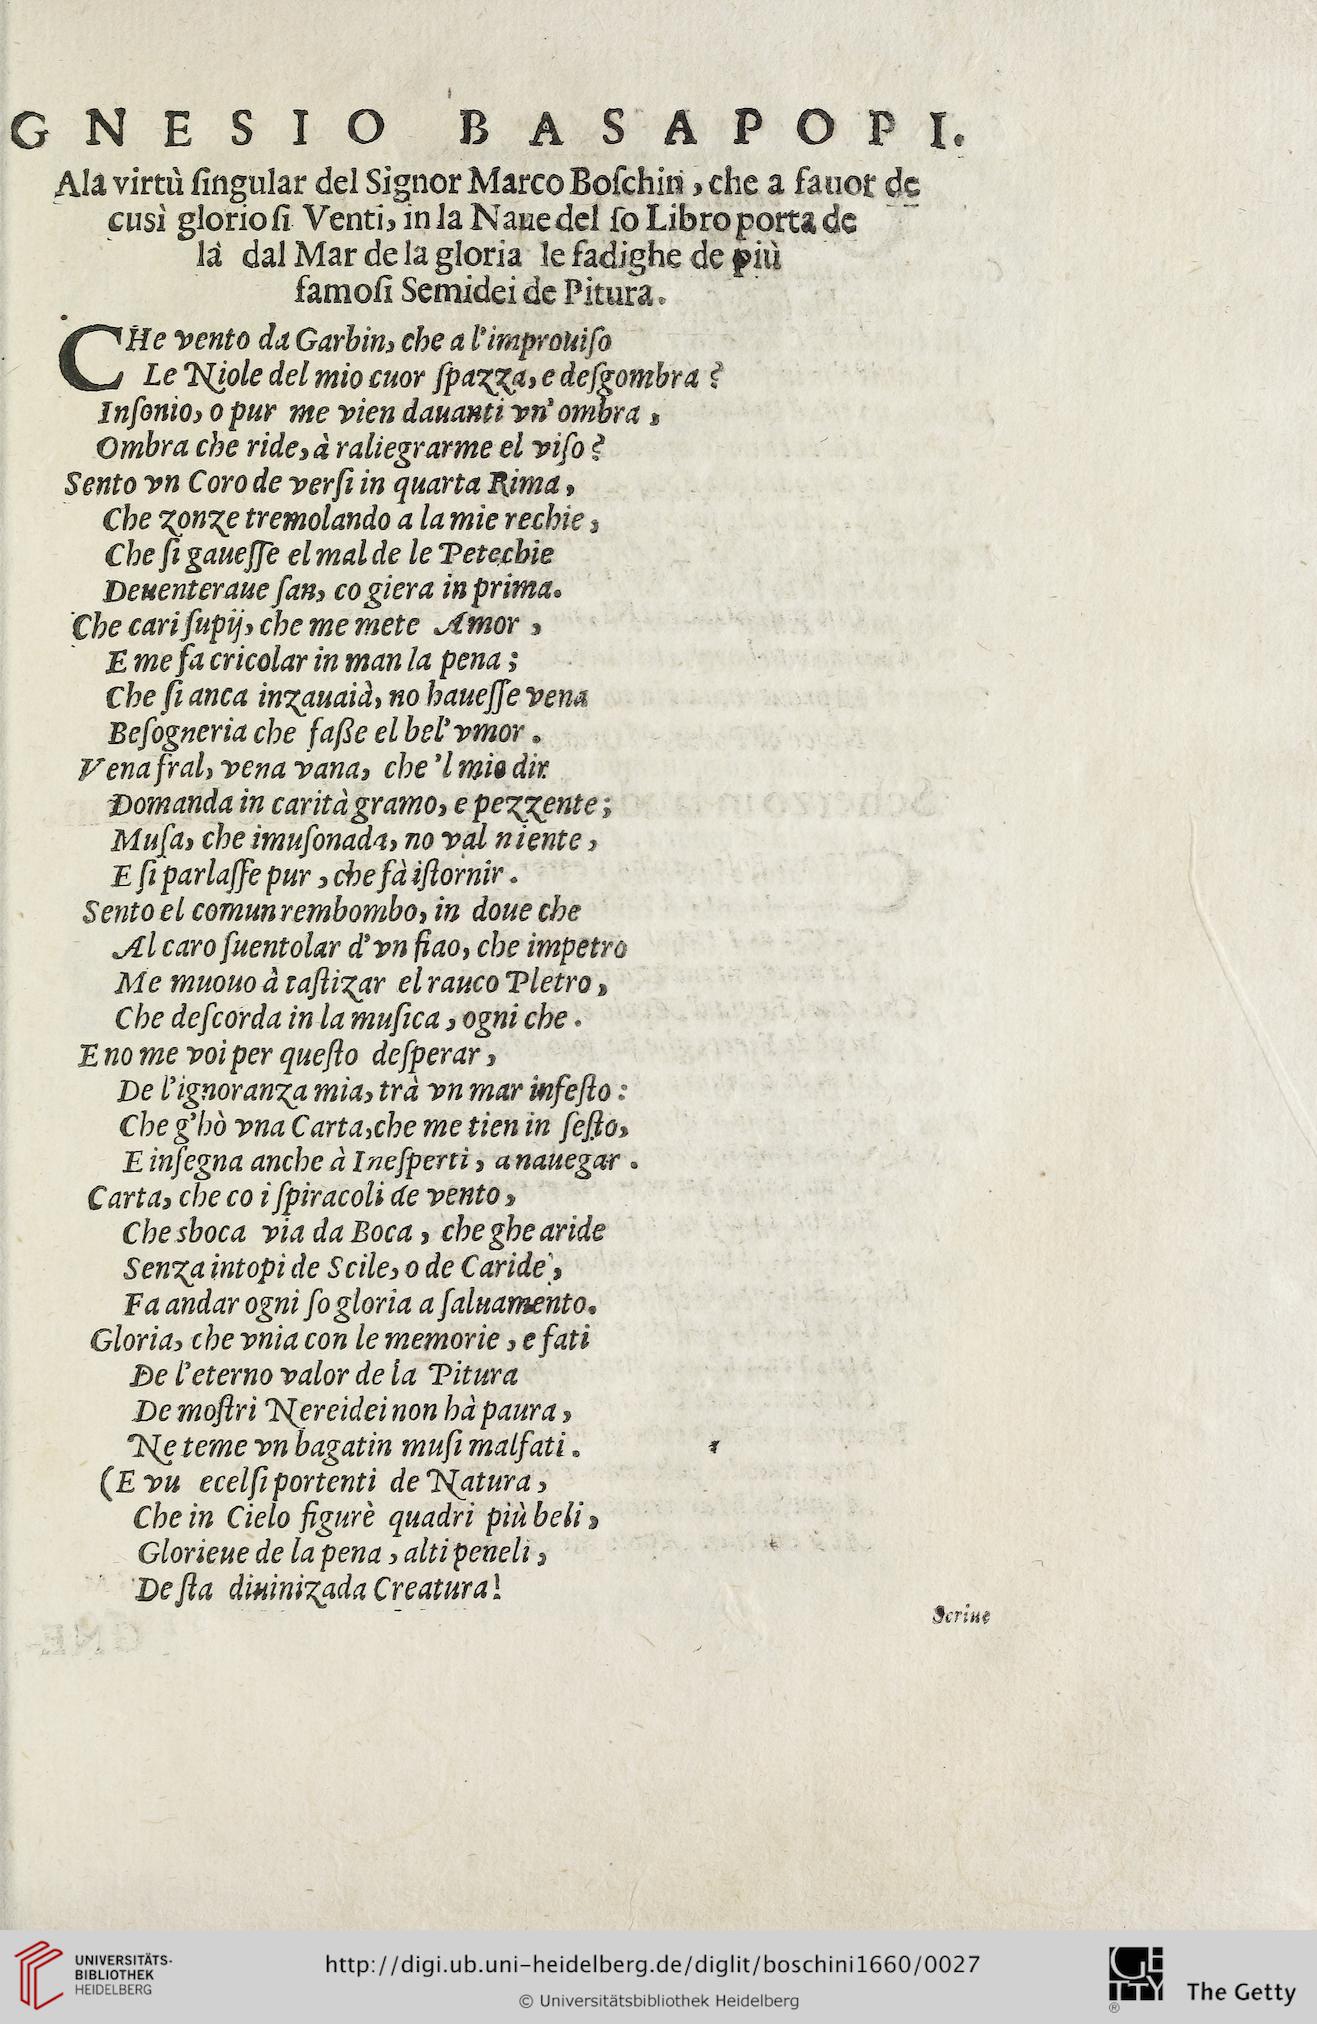 GNESIO BASAPOPI.
Ala virtù ſingular del Signor Marco Boſchin, che a fauor de
cusì glorioſi Venti, in la Naue del ſo Libro porta de
là dal Mar de la gloria le fadighe de più
famoſi Semidei de Pitura.
CHe vento da Garbin, che a l'improuiſo
Le Niole del mio cuor ſpazza, e deſgombra?
Inſonio, o pur me vien dauanti vn' ombra,
Ombra che ride, à raliegrarme el viſo?
Sento vn Coro de verſi in quarta Rima,
Che zonze tremolando a la mie rechie,
Che ſi gaueſſe el mal de le Petechie
Deuenteraue ſan, co giera in prima.
Che cari ſupij, che me mete Amor,
E me fa cricolar in man la pena;
Che ſi anca inzauaià, no haueſſe vena
Beſogneria che faße el bel' vmor.
Vena fral, vena vana, che 'l mio dir
Domanda in carità gramo, e pezzente;
Muſa, che imuſonada, no val niente,
E ſi parlaſſe pur, che fà iſtornir.
Sento el comun rembombo, in doue che
Al caro ſuentolar d'vn fiao, che impetro
Me muouo à taſtizar el rauco Pletro,
Che deſcorda in la muſica, ogni che.
E no me voi per queſto deſperar,
De l'ignoranza mia, trà vn mar infeſto:
Che g'hò vna Carta, che me tien in ſeſto,
E inſegna anche à Ineſperti, a nauegar.
Carta, che co i ſpiracoli de vento,
Che sboca via da Boca, che ghe aride
Senza intopi de Scile, o de Caride,
Fa andar ogni ſo gloria a ſaluamento.
Gloria, che vnia con le memorie, e fati
De l'eterno valor de la Pitura
De moſtri Nereidei non hà paura,
Ne teme vn bagatin muſi malfati.
(E vu ecelſi portenti de Natura,
Che in Cielo figurè quadri più beli,
Glorieue de la pena, alti peneli,
De ſta diuinizada Creatura!
Scriue
UNIVERSITÄTS-
BIBLIOTHEK
HEIDELBERG
http://digi.ub.uni-heidelberg.de/diglit/boschini1660/0027
© Universitätsbibliothek Heidelberg
GETTY
The Getty